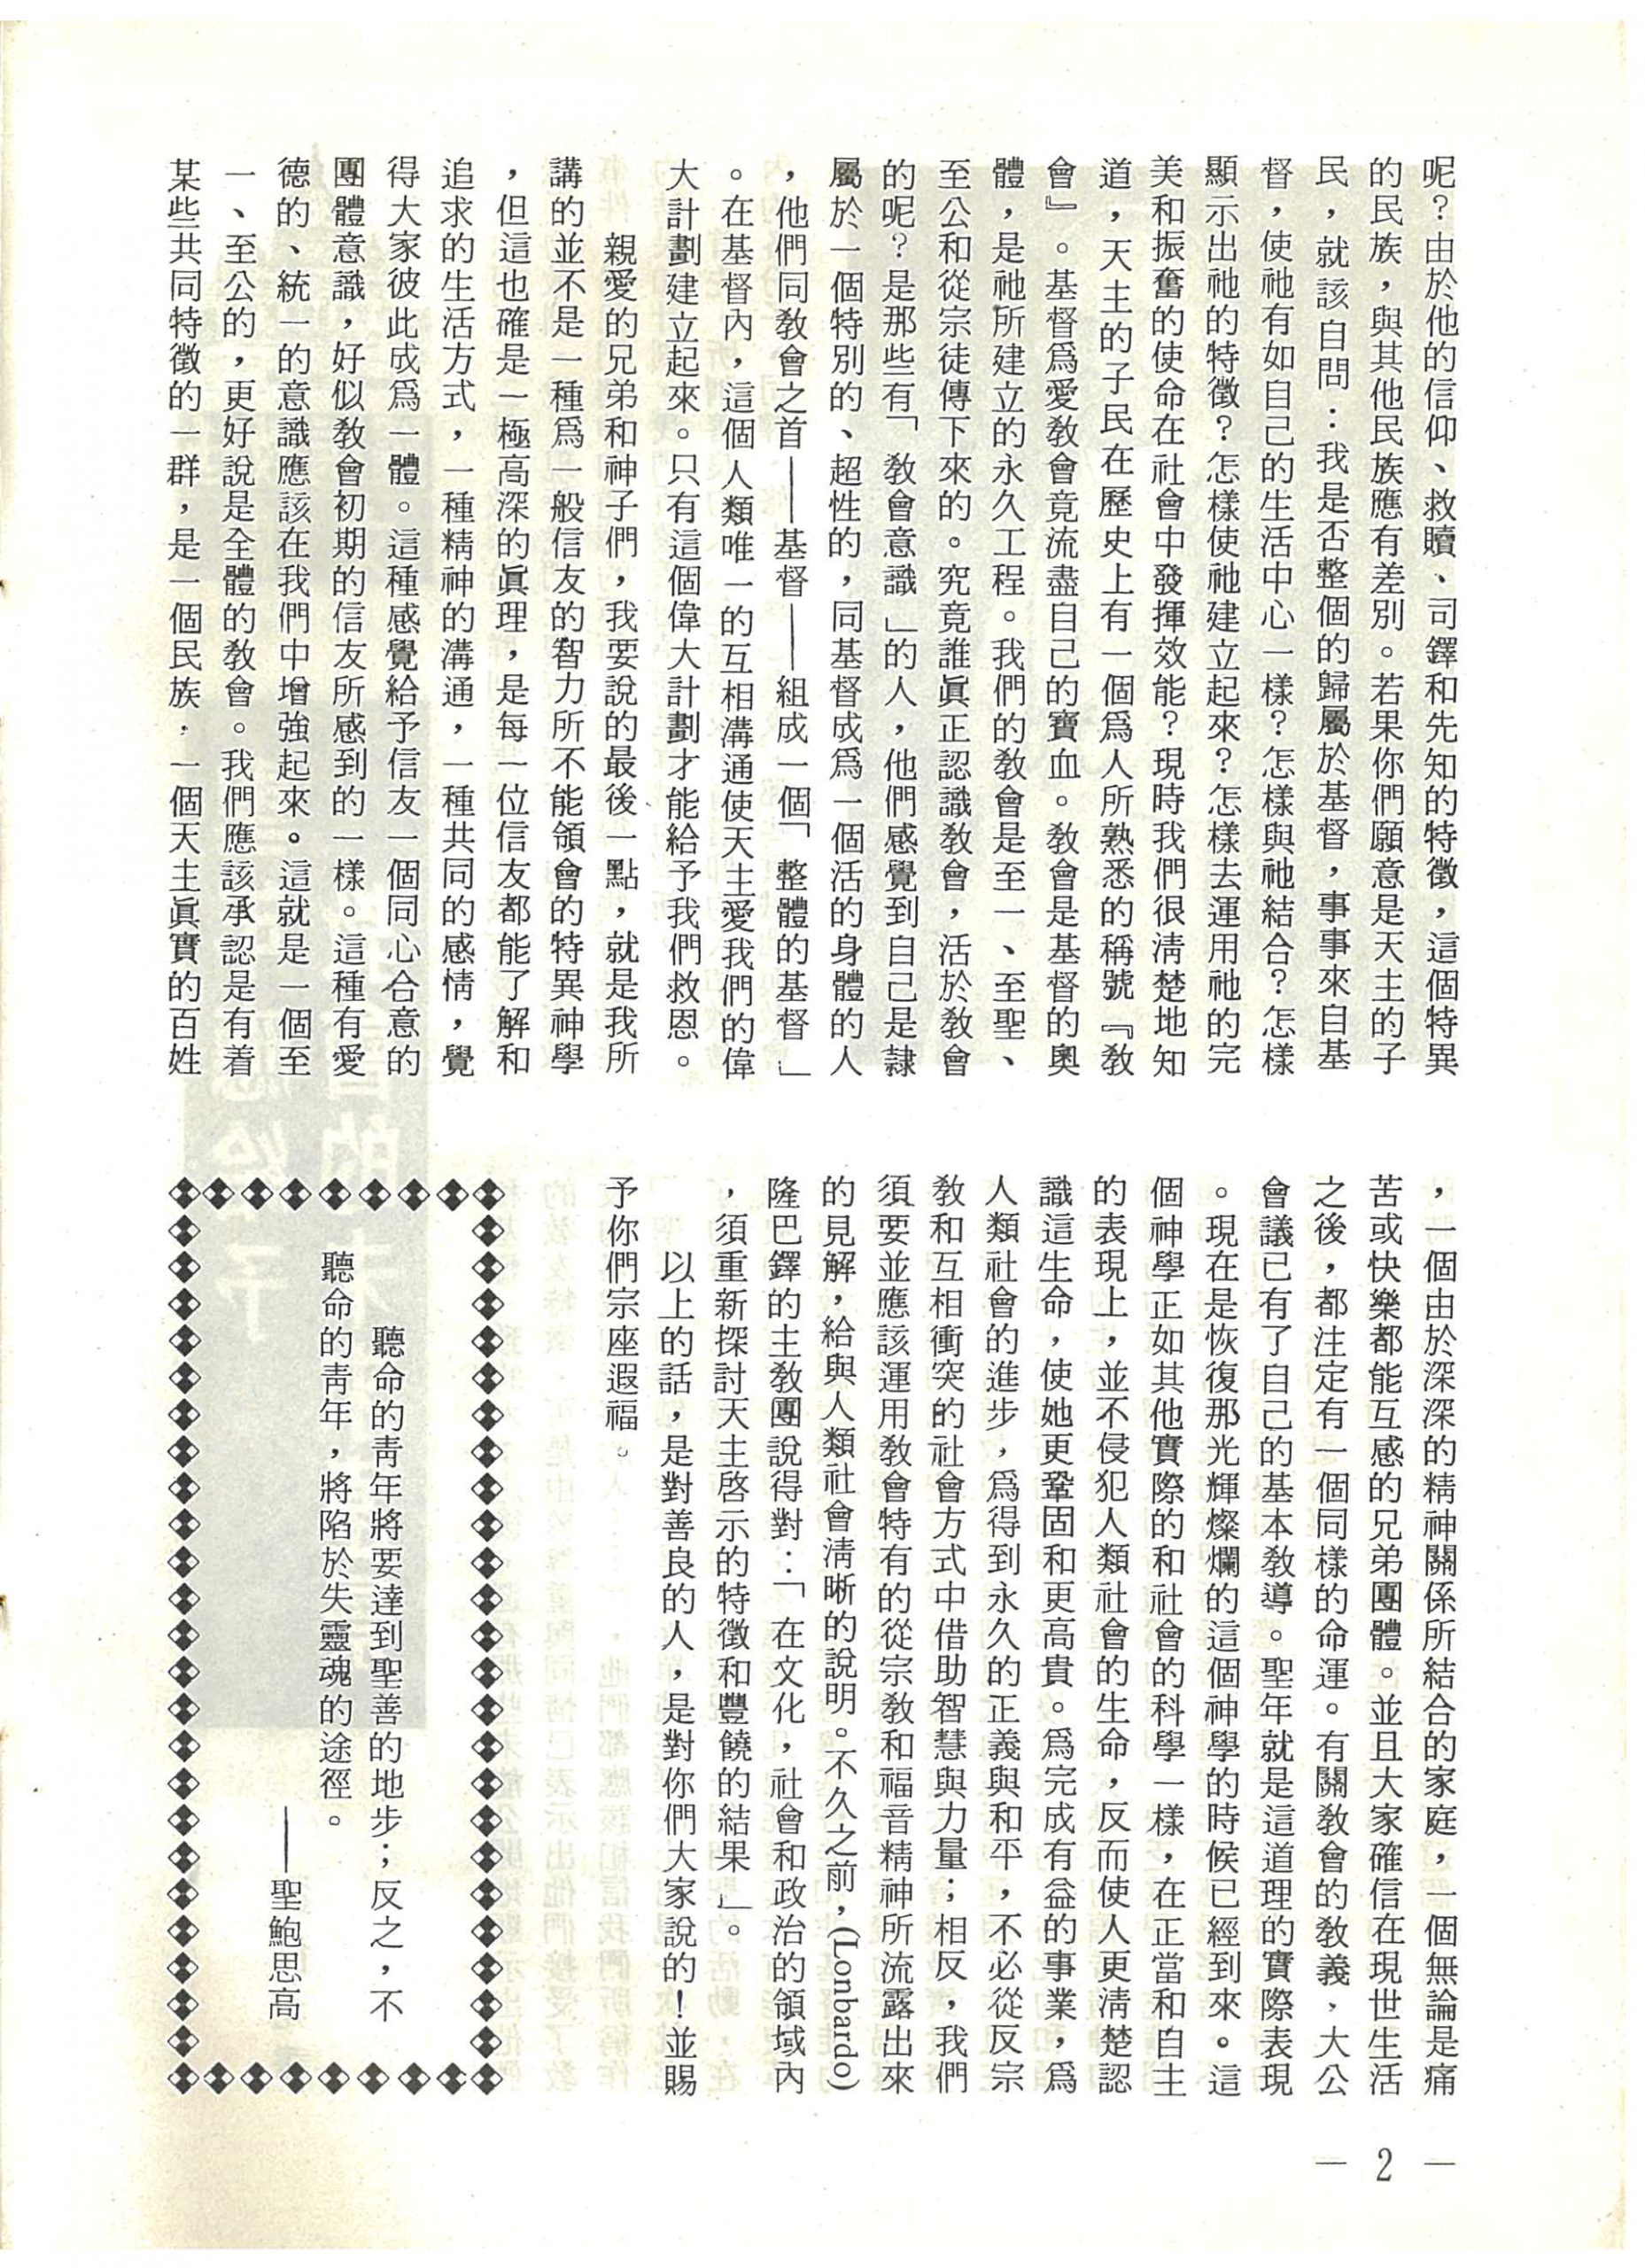 呢？由於他的信仰、救贖、司鐸和先知的特徵，這個特異
的民族，與其他民族應有差別。若果你們願意是天主的子
民，就該自問：我是否整個的歸屬於基督，事事來自基
督，使祂有如自己的生活中心一樣？怎樣與祂結合？怎樣
顯示出祂的特徵？怎樣使祂建立起來？怎樣去運用祂的完
美和振奮的使命在社會中發揮效能？現時我們很淸楚地知
道，天主的子民在歷史上有一個爲人所熟悉的稱號『敎
會』。基督爲愛敎會竟流盡自己的寶血。敎會是基督的奧
體，是祂所建立的永久工程。我們的敎會是至一、至聖、
至公和從宗徒傳下來的。究竟誰眞正認識敎會，活於敎會
的呢？是那些有「敎會意識」的人，他們感覺到自己是隸
屬於一個特別的、超性的，同基督成爲一個活的身體的人
，他們同敎會之首——基督——組成一個「整體的基督」
。在基督內，這個人類唯一的互相溝通使天主愛我們的偉
大計劃建立起來。只有這個偉大計劃才能給予我們救恩。
親愛的兄弟和神子們，我要說的最後一點，就是我所
講的並不是一種爲一般信友的智力所不能領會的特異神學
，但這也確是一極高深的眞理，是每一位信友都能了解和
追求的生活方式，一種精神的溝通，一種共同的感情，覺
得大家彼此成爲一體。這種感覺給予信友一個同心合意的
團體意識，好似敎會初期的信友所感到的一樣。這種有愛
德的、統一的意識應該在我們中增強起來。這就是一個至
一、至公的，更好說是全體的敎會。我們應該承認是有着
某些共同特徵的一群，是一個民族，一個天主眞實的百姓
，一個由於深深的精神關係所結合的家庭，一個無論是痛
苦或快樂都能互感的兄弟團體。並且大家確信在現世生活
之後，都注定有一個同樣的命運。有關敎會的敎義，大公
會議已有了自己的基本敎導。聖年就是這道理的實際表現
。現在是恢復那光輝燦爛的這個神學的時候已經到來。這
個神學正如其他實際的和社會的科學一樣，在正當和自主
的表現上，並不侵犯人類社會的生命，反而使人更淸楚認
識這生命，使她更鞏固和更高貴。爲完成有益的事業，爲
人類社會的進步，爲得到永久的正義與和平，不必從反宗
敎和互相衝突的社會方式中借助智慧與力量；相反，我們
須要並應該運用敎會特有的從宗敎和福音精神所流露出來
的見解，給與人類社會淸晰的說明。不久之前，(Lonbardo)
隆巴鐸的主敎團說得對：「在文化，社會和政治的領域內
，須重新探討天主啓示的特徵和豐饒的結果」。
以上的話，是對善良的人，是對你們大家說的！並賜
予你們宗座遐福。
聽命的靑年將要達到聖善的地步；反之，不
聽命的靑年，將陷於失靈魂的途徑。
——聖鮑思高
— 2 —